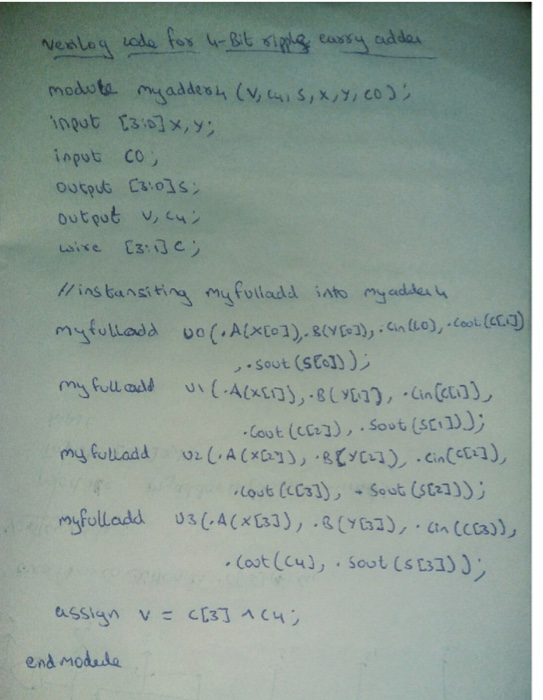 Verilog code for 4-Bit ripple carry adder
module myadder4 (V, C4, S, X, Y, C0);
input [3:0] X, Y;
input C0;
output [3:0] S;
output V, C4;
wire [3:1] C;
//instansiting myfulladd into myadder4
myfulladd U0(.A(X[0]), .B(Y[0]), .Cin(C0), .Cout(C[1])
, .Sout(S[0]));
myfulladd U1(.A(X[1]), .B(Y[1]), .Cin(C[1]),
.Cout(C[2]), .Sout(S[1]));
myfulladd U2(.A(X[2]), .B(Y[2]), .Cin(C[2]),
.Cout(C[3]), .Sout(S[2]));
myfulladd U3(.A(X[3]), .B(Y[3]), .Cin(C[3]),
.Cout(C4), .Sout(S[3]));
assign V = C[3] ^ C4;
endmodule